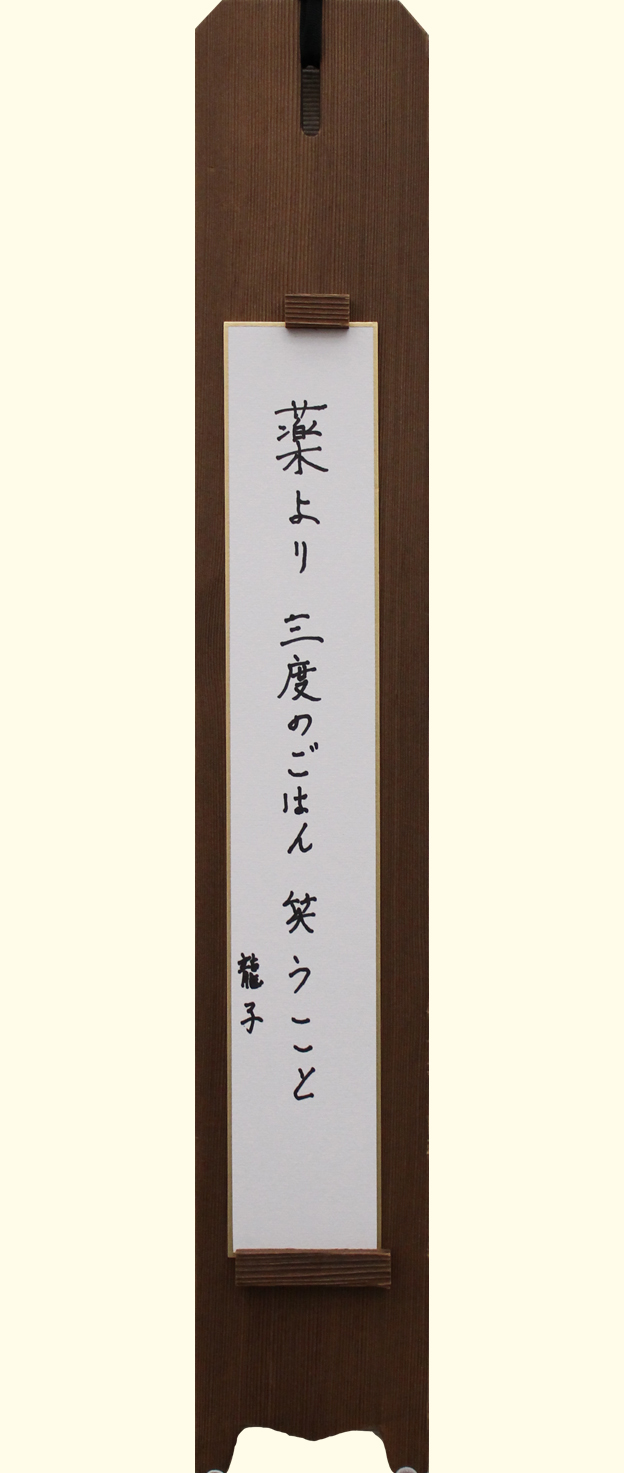 薬より 三度のごはん 笑うこと
龍子